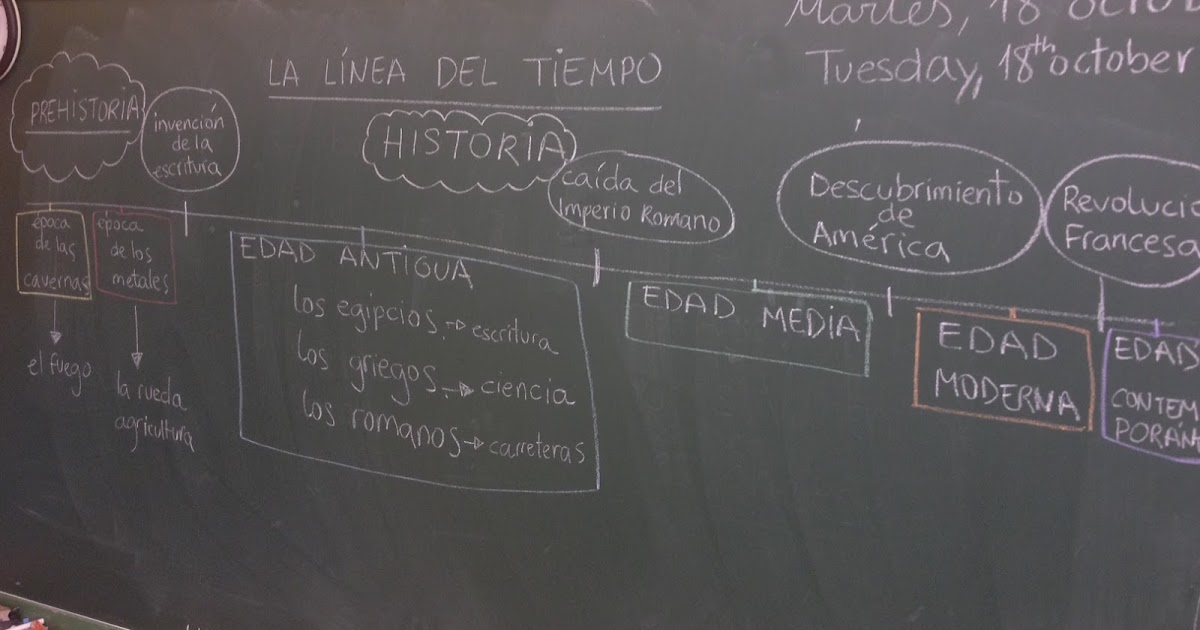 Martes, 18
Tuesday, 18th october
LA LÍNEA DEL TIEMPO
PREHISTORIA
invención
de la
escritura
HISTORIA
caída del
Imperio Romano
Descubrimiento
de
América
Revoluci
Francesa
época
de las
cavernas
el fuego
época
de los
metales
la rueda
agricultura
EDAD ANTIGUA
los egipcios → escritura
los griegos → ciencia
los romanos → carreteras
EDAD MEDIA
EDAD
MODERNA
EDAD
CONTEM
PORÁN